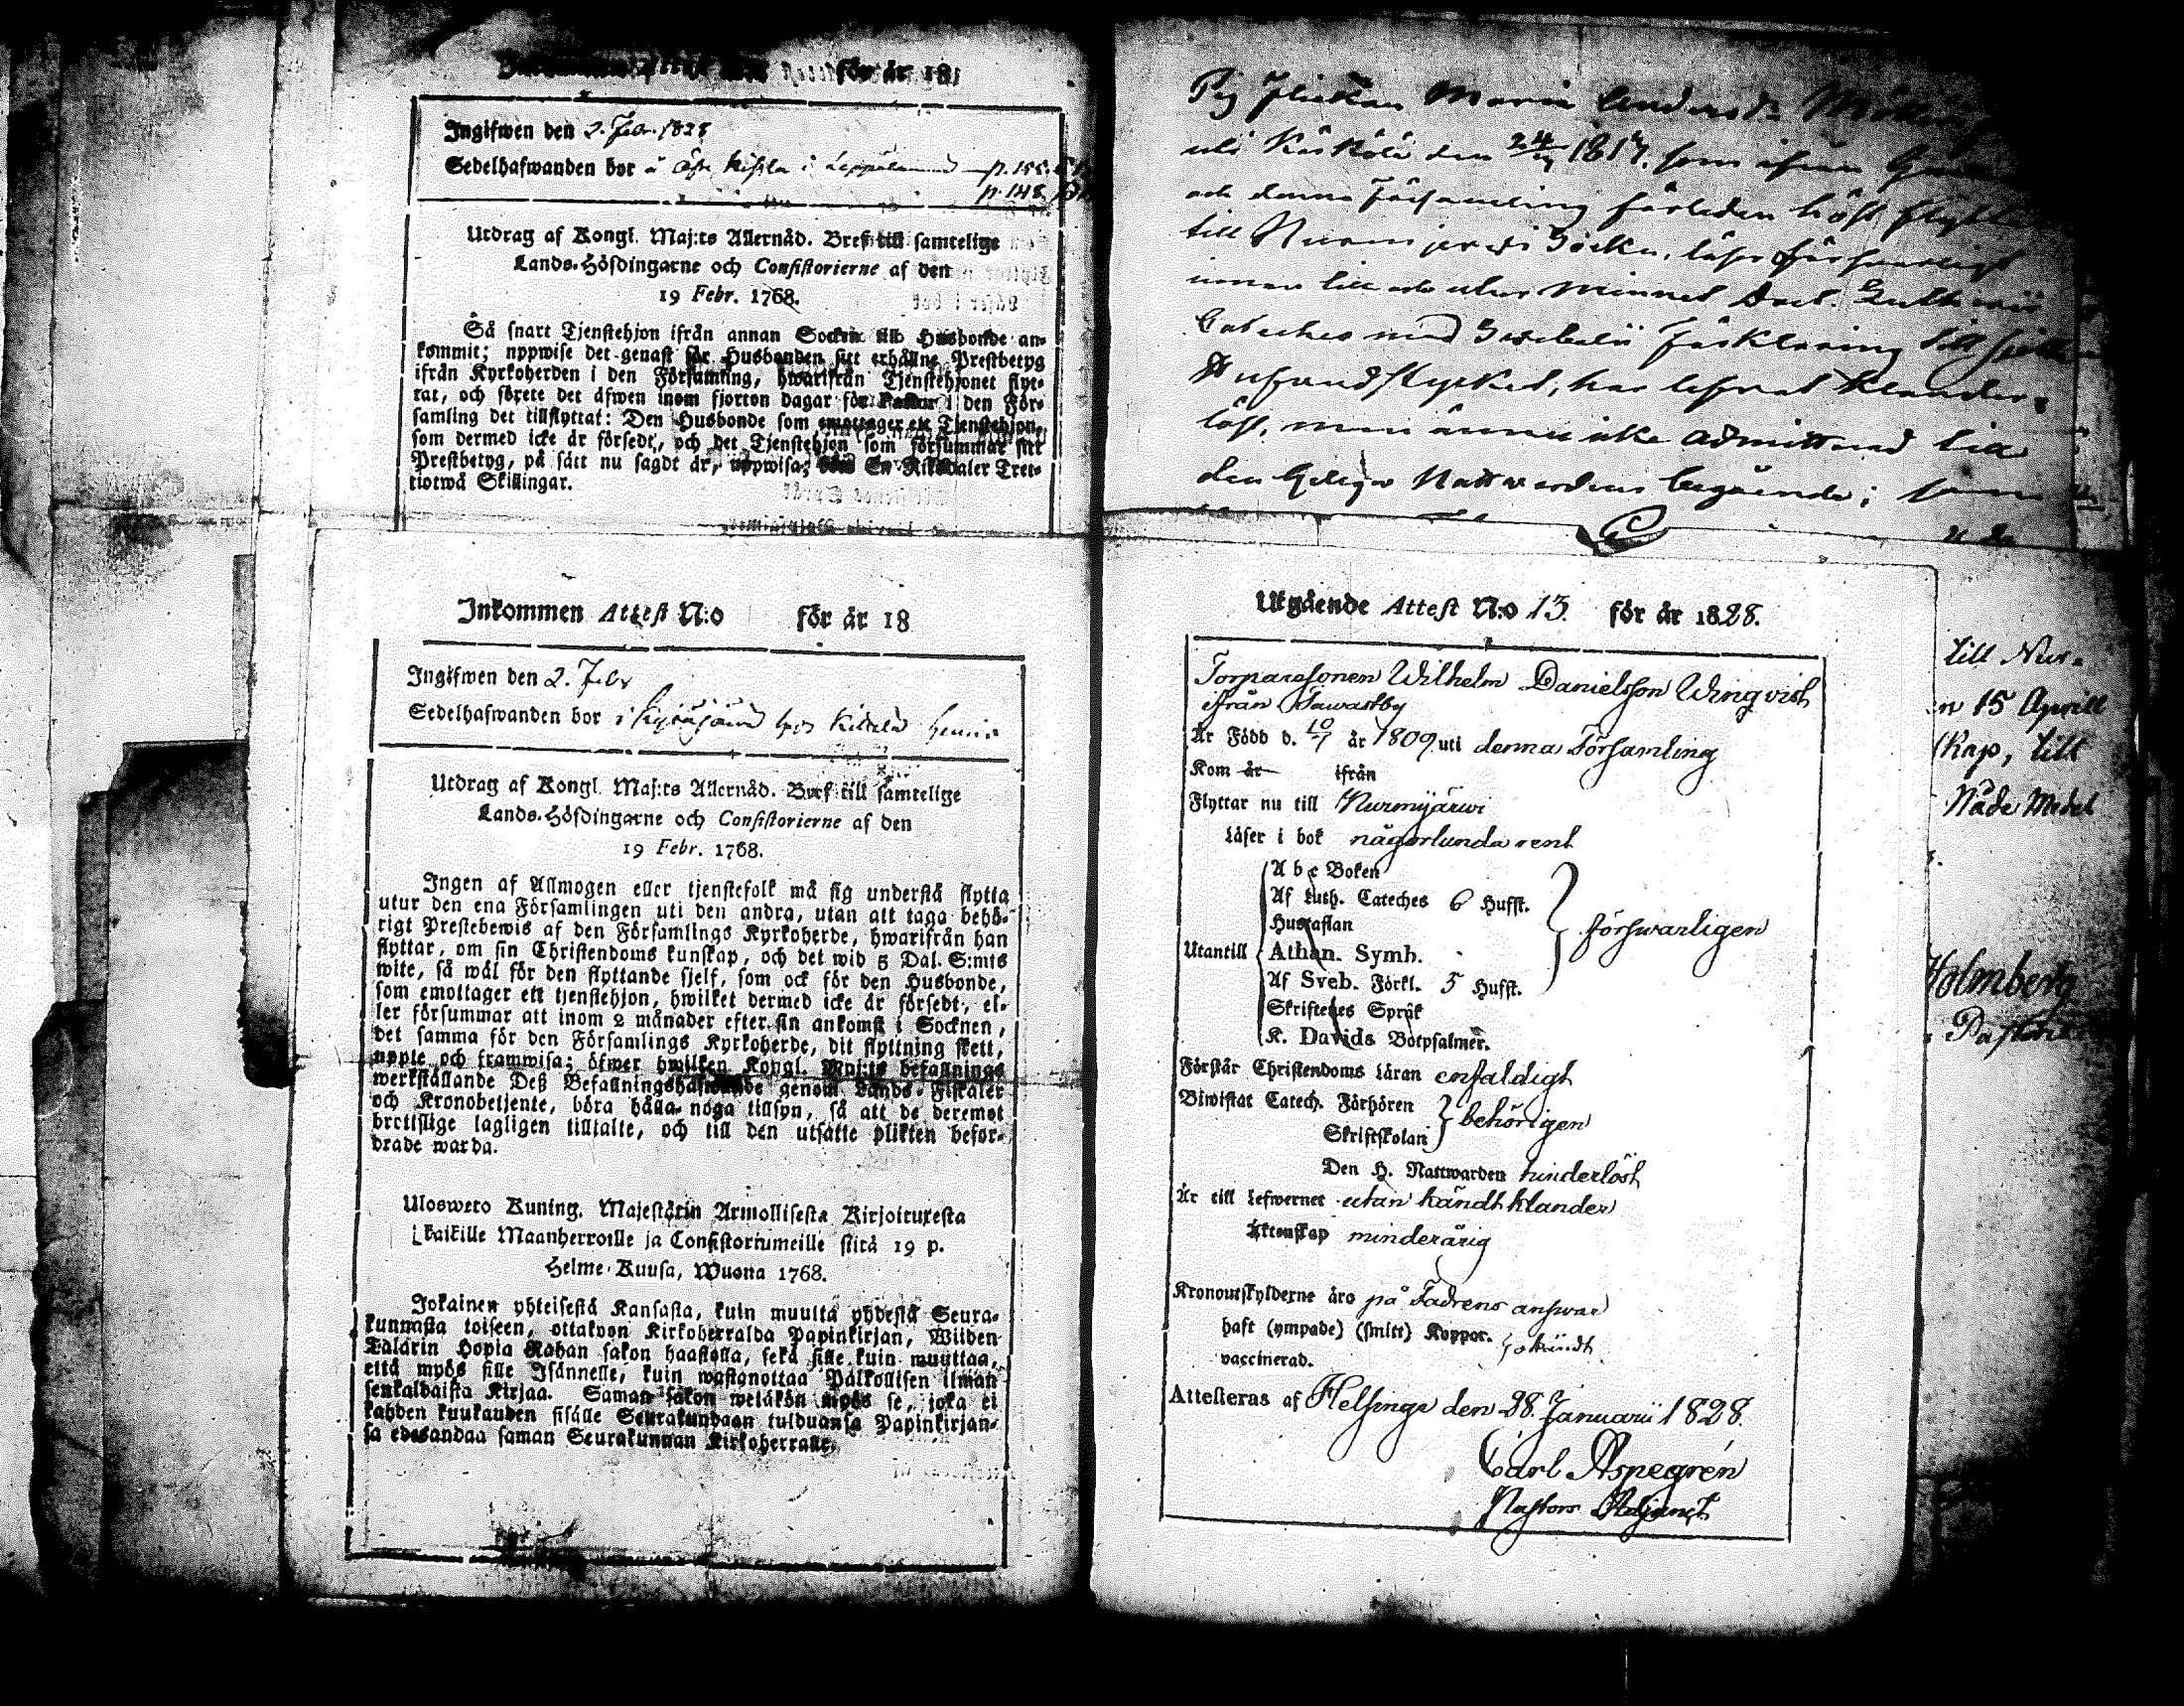 för år 18
Ingifwen den 2. Febr. 1828
Sedelhafwanden bor
p. 148.
Utdrag af Kongl. Maj:ts Allernåd. Bref till samtelige
Lands-Höfdingarne och Consistorierne af den
19 Febr. 1768.
Så snart Tjenstehjon ifrån annan Socken till Husbonde an-
kommit; uppwise det genast för Husbonden sitt erhållne Prestbetyg
ifrån Kyrkoherden i den Församling, hwarifrån Tjenstehjonet flyt-
tat, och förete det äfwen inom fjorton dagar för Pastor i den För-
samling det tillflyttat: Den Husbonde som emottager ett Tjenstehjon,
som dermed icke är försedt, och det Tjenstehjon som försummar sitt
Prestbetyg, på sätt nu sagdt är, uppwisa; böte En Riksdaler Tret-
tiotwå Skillingar.
Inkommen Attest N:o för år 18
Ingifwen den 2. Febr
Sedelhafwanden bor i
Utdrag af Kongl. Maj:ts Allernåd. Bref till samtelige
Lands-Höfdingarne och Consistorierne af den
19 Febr. 1768.
Ingen af Allmogen eller tjenstefolk må sig understå flytta
utur den ena Församlingen uti den andra, utan att taga behö-
rigt Prestebewis af den Församlings Kyrkoherde, hwarifrån han
flyttar, om sin Christendoms kunskap, och det wid 5 Dal. S:mts
wite, så wäl för den flyttande sjelf, som ock för den Husbonde,
som emottager ett tjenstehjon, hwilket dermed icke är försedt, el-
ler försummar att inom 2 månader efter sin ankomst i Socknen,
det samma för den Församlings Kyrkoherde, dit flyttning skett,
uppte och framwisa; öfwer hwilken Kongl. Maj:ts befallnings
werkställande Deß Befallningshafwande genom Lands-Fiskaler
och Kronobetjente, böra hålla noga tillsyn, så att de deremot
brottslige lagligen tilltalte, och till den utsatte plikten beför-
drade warda.
Ulosweto Kuning. Majestätin Armollisesta Kirjoituxesta
kaikille Maanherroille ja Consistoriumeille siitä 19 p.
Helme-Kuusa, Wuona 1768.
Jokainen yhteisestä Kansasta, kuin muutta yhdestä Seura-
kunnasta toiseen, ottakoon Kirkoherralda Papinkirjan, Wiiden
Talarin Hopia Rahan sakon haastolla, sekä sille kuin muuttaa,
että myös sille Isännelle, kuin wastanottaa Palkollisen ilman
senkaldaista Kirjaa. Saman sakon wetäkön myös se, joka ei
kahden kuukauden sisälle Seurakundaan tulduansa Papinkirjan-
sa edesandaa saman Seurakunnan Kirkoherralle.
Pig Flickan Maria Andersd:r
uti Käskölä den 24/4 1817. som ifrån
och denna Församling förleden höst flyttat
till Nurmijerwi Socken, läser försvarligt
innan till och utur minnet Doct. Lutherii
Cateches med Svebelii Förklaring till
Hufvudstycket, har lefvat klander-
löst, men ännu icke admitterad till
den Heliga Nattvardens begående;
Utgående Attest N:o 13. för år 1828.
Torparesonen Wilhelm Danielsson Wingvist
ifrån Tawastby
Är Född d. 10/7 år 1809. uti denna Församling
Kom år ifrån
Flyttar nu till Nurmijärwi
Läser i bok någorlunda rent
A b c Boken
Af Luth. Cateches 6 Hufst.
Hustaflan
försvarligen
Utantill Athan. Symb.
Af Sveb. Förkl. 5 Hufst.
Skriftenes Språk
K. Davids Botpsalmer.
Förstår Christendoms Läran enfaldigt
Biwistat Catech. Förhören
behörigen
Skriftskolan
Den H. Nattwarden hinderlöst
Är till Lefwernet utan kändt klander
Äktenskap minderårig
Kronoutskylderne äro på Fadrens answar
haft (ympade) (smitt) Koppor. okändt
vaccinerad.
Attesteras af Helsinge den 28. Januarii 1828.
Carl Aspegrén
Pastors Adjunct
till Nur-
15 Aprill
skap, till
Nåde Medel
Holmberg
Pastor